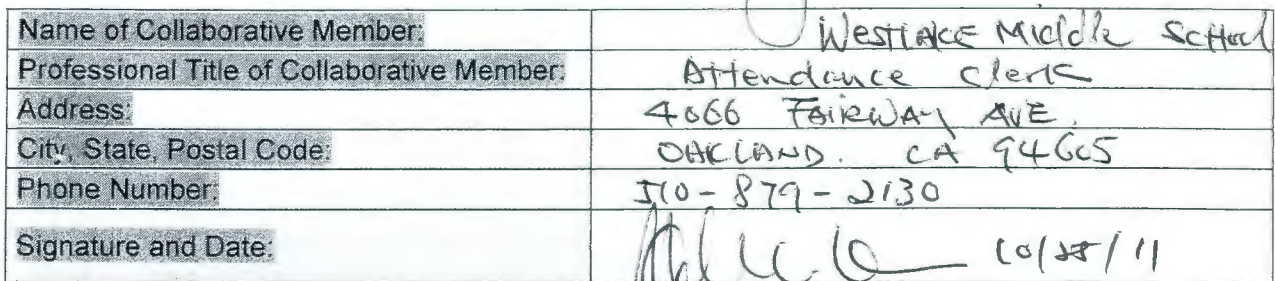 Name of Collaborative Member: Westlake Middle School
Professional Title of Collaborative Member: Attendance Clerk
Address: 4066 Fairway AVE.
City, State, Postal Code: OAKLAND. CA 94605
Phone Number: 510-879-2130
Signature and Date: 10/28/11